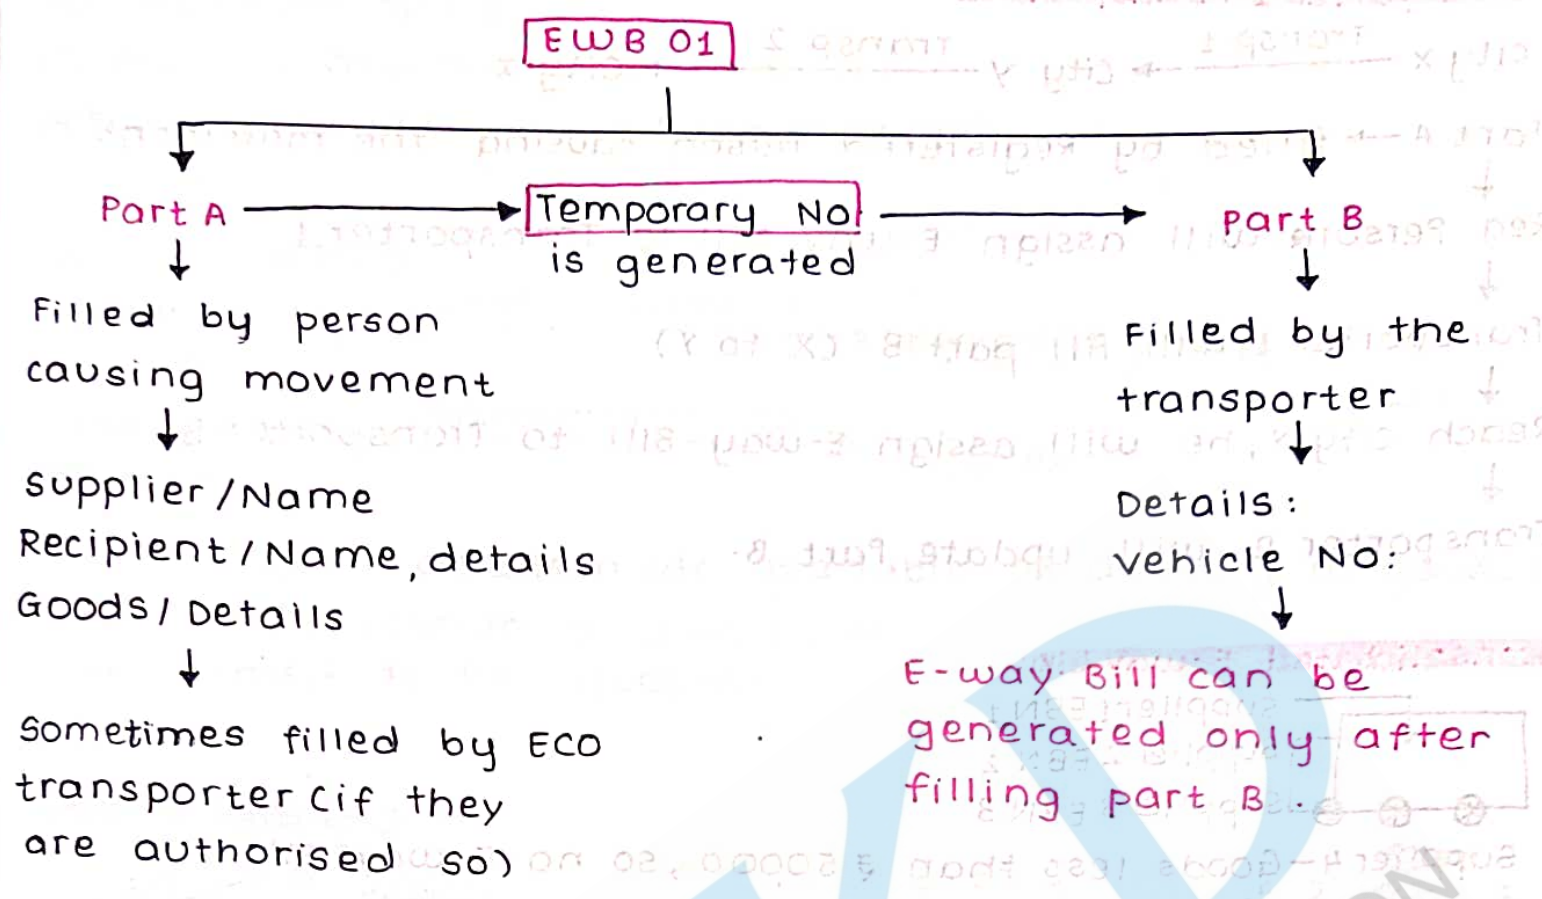 EWB 01
Part A
Temporary No
is generated
Part B
Filled by person
causing movement
Supplier/Name
Recipient/Name, details
Goods/Details
Sometimes filled by ECO
transporter (if they
are authorised so)
Filled by the
transporter
Details:
Vehicle No:
E-way Bill can be
generated only after
filling part B.